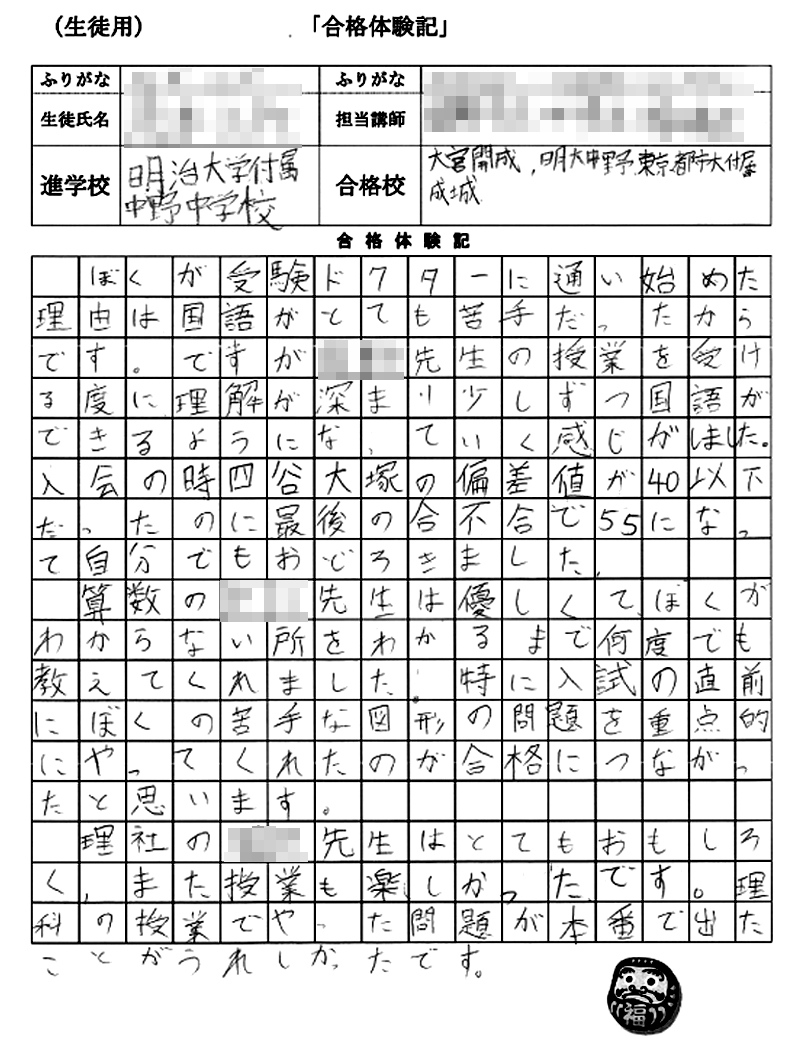 （生徒用）　「合格体験記」
ふりがな　ふりがな
生徒氏名　担当講師
進学校　明治大学付属中野中学校　合格校　大宮開成，明大中野、東京都市大付属
成城
合格体験記
ぼくが受験ドクターに通い始めた
理由は国語がとても苦手だったから
です。ですが先生の授業を受け
る度に理解が深まり少しずつ国語が
できるようになっていく感じがしました。
入会の時四谷大塚の偏差値が40以下
だったのに最後の合不合で55になっ
て自分でもおどろきました。
算数の先生は優しくて、ぼくが
わからない所をわかるまで何度でも
教えてくれました。特に入試の直前
にぼくの苦手な図形の問題を重点的
にやってくれたのが合格につながっ
たと思います。
理社の先生はとてもおもしろ
く，また授業も楽しかったです。理
科の授業でやった問題が本番で出た
ことがうれしかったです。
福